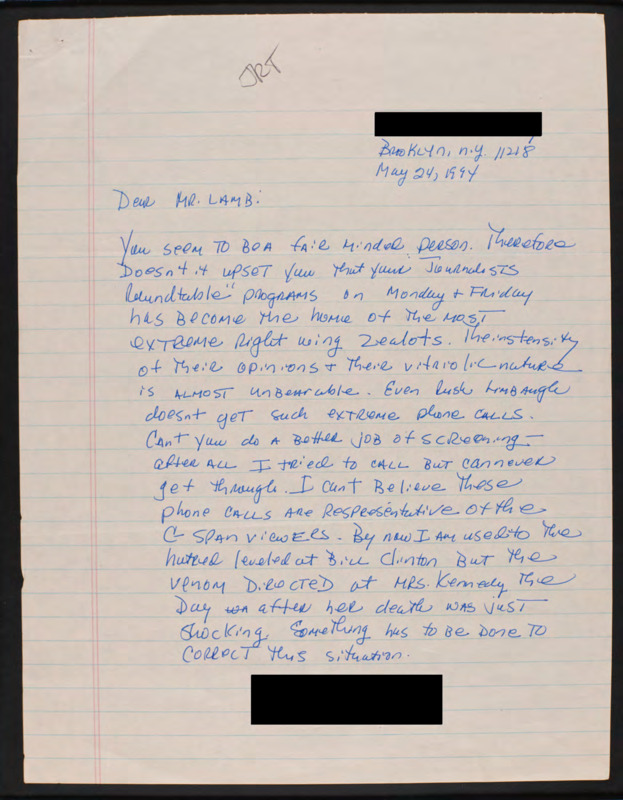 JRT
Brooklyn, n.y. 11218
May 24, 1994
Dear MR. LAMB:
You seem to be a fair minded person. Therefore
Doesn't it upset you that your "Journalists
Roundtable" programs on Monday + Friday
has become the home of the most
extreme Right wing zealots. The intensity
of their opinions + their vitriolic nature
is almost unbearable. Even Rush Limbaugh
doesnt get such extreme phone calls.
Cant you do a better job of screening -
after all I tried to call but can never
get through. I can't Believe these
phone calls are respresentative of the
C-Span viewers. By now I am used to the
hatred leveled at Bill Clinton But the
venom Directed at MRS. Kennedy the
Day after her death was just
shocking. Something has to be done to
correct this situation.